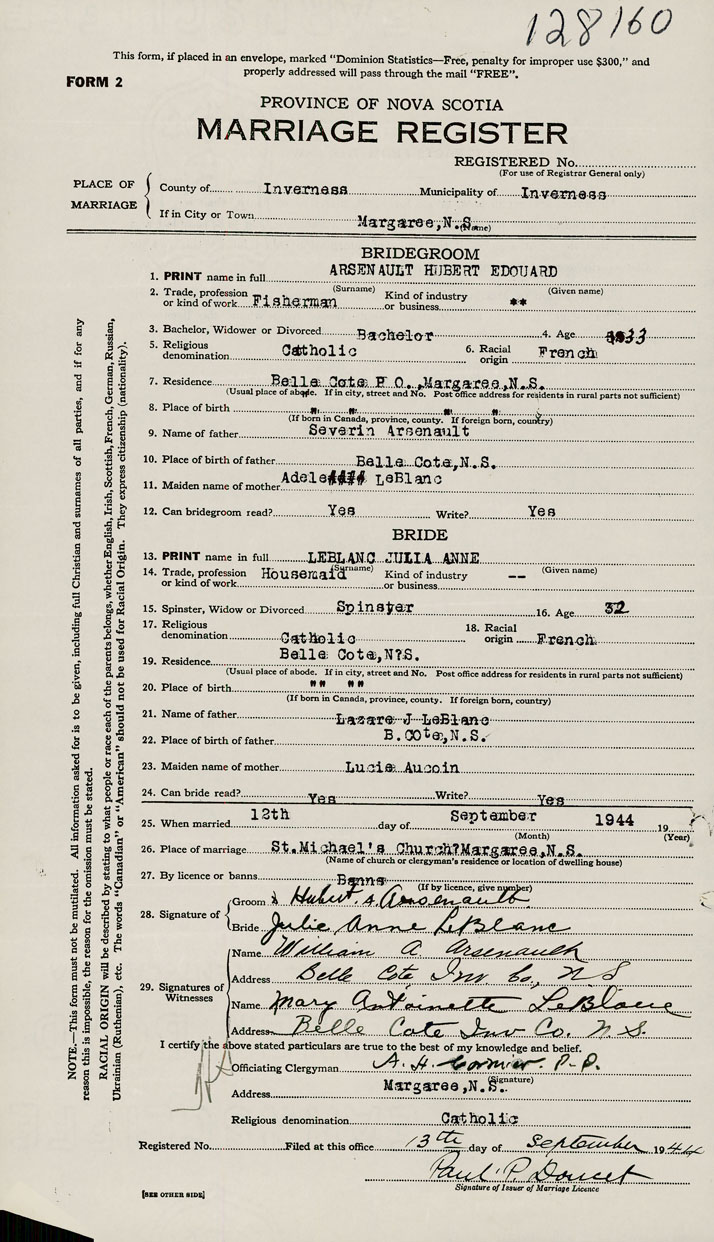 128160
This form, if placed in an envelope, marked "Dominion Statistics—Free, penalty for improper use $300," and
properly addressed will pass through the mail "FREE".
FORM 2
PROVINCE OF NOVA SCOTIA
MARRIAGE REGISTER
REGISTERED No.
(For use of Registrar General only)
PLACE OF MARRIAGE
County of Inverness Municipality of Inverness
If in City or Town Margaree,N.S.
(Name)
BRIDEGROOM
1. PRINT name in full ARSENAULT HUBERT EDOUARD
(Surname) (Given name)
2. Trade, profession or kind of work Fisherman Kind of industry or business **
3. Bachelor, Widower or Divorced Bachelor 4. Age 33
5. Religious denomination Catholic 6. Racial origin French
7. Residence Belle Cote P O.,Margaree,N.S.
(Usual place of abode. If in city, street and No. Post office address for residents in rural parts not sufficient)
8. Place of birth " " " "
(If born in Canada, province, county. If foreign born, country)
9. Name of father Severin Arsenault
10. Place of birth of father Belle Cote,N.S.
11. Maiden name of mother Adele#### LeBlanc
12. Can bridegroom read? Yes Write? Yes
BRIDE
13. PRINT name in full LEBLANC JULIA ANNE
(Surname) (Given name)
14. Trade, profession or kind of work Housemaid Kind of industry or business --
15. Spinster, Widow or Divorced Spinster 16. Age 32
17. Religious denomination Catholic 18. Racial origin French
19. Residence Belle Cote,N?S.
(Usual place of abode. If in city, street and No. Post office address for residents in rural parts not sufficient)
20. Place of birth "" ""
(If born in Canada, province, county. If foreign born, country)
21. Name of father Lazare J LeBlanc
22. Place of birth of father B.COte,N.S.
23. Maiden name of mother Lucie Aucoin
24. Can bride read? Yes Write? Yes
25. When married 12th day of September 1944 19
(Month) (Year)
26. Place of marriage St.Michael's Church?Margaree,N.S.
(Name of church or clergyman's residence or location of dwelling house)
27. By licence or banns Banns
(If by licence, give number)
28. Signature of
Groom Hubert Arsenault
Bride Julie Anne LeBlanc
29. Signatures of Witnesses
Name William A. Arsenault
Address Belle Cote Inv Co, N S
Name Mary Antoinette LeBlanc
Address Belle Cote Inv Co. N. S.
I certify the above stated particulars are true to the best of my knowledge and belief.
Officiating Clergyman A. H. Cormier. P.P.
(Signature)
Address Margaree,N.S.
Religious denomination Catholic
Registered No. Filed at this office 13th day of September 1944
Paul P. Doucet
Signature of Issuer of Marriage Licence
[SEE OTHER SIDE]
NOTE.—This form must not be mutilated. All information asked for is to be given, including full Christian and surnames of all parties, and if for any
reason this is impossible, the reason for the omission must be stated.
RACIAL ORIGIN will be described by stating to what people or race each of the parents belongs, whether English, Irish, Scottish, French, German, Russian,
Ukrainian (Ruthenian), etc. The words "Canadian" or "American" should not be used for Racial Origin. They express citizenship (nationality).